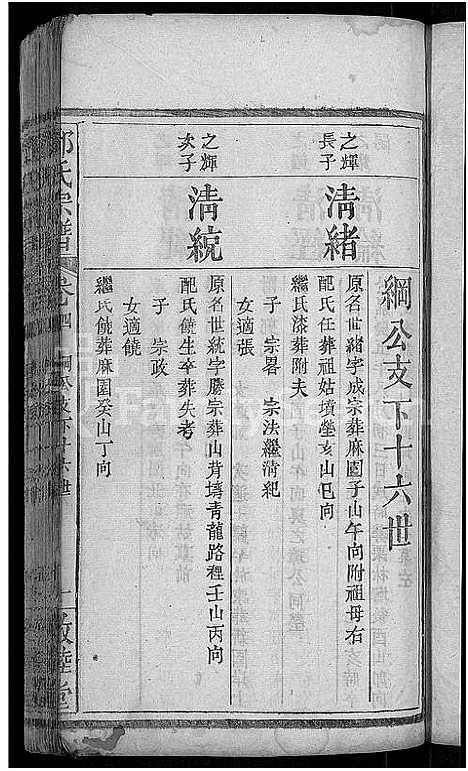 綱公支下十六世
之輝
長子
清緒
原名世緒字成宗葬麻園子山午向附祖母右
配氏任葬祖姑墳塋亥山巳向
繼氏漆葬附夫
子 宗畧 宗法繼清紀
女適張
之輝
次子
清統
原名世統字勝宗葬山背壪青龍路裡壬山丙向
配氏饒生卒葬失考
子 宗政
女適饒
繼氏饒葬麻園癸山丁向
氏宗譜
卷四 綱公支下十六世
敦睦堂